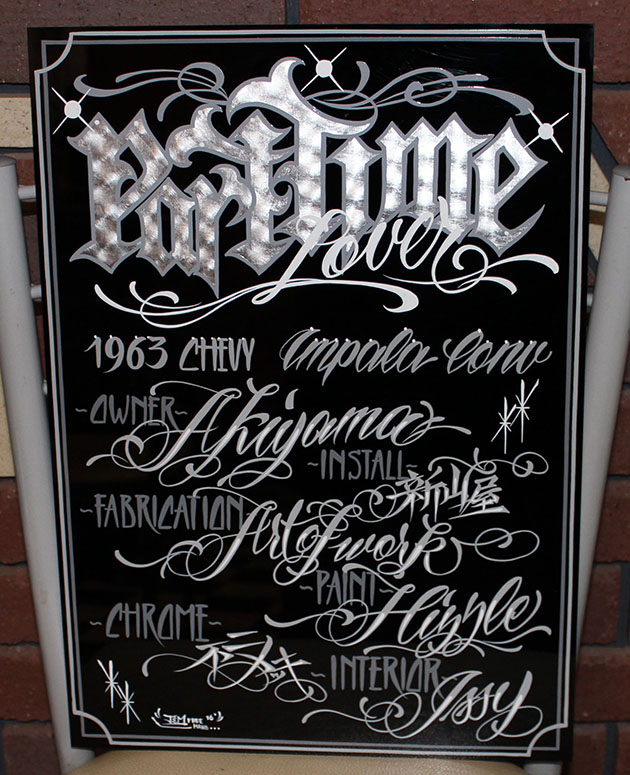 Part Time
Lover
1963 CHEVY Impala Conv
~OWNER~ Akiyama
~INSTALL 新山屋
~FABRICATION Art of work
~PAINT~ Hizzle
~CHROME~ ネラメッキ
~INTERIOR Issy